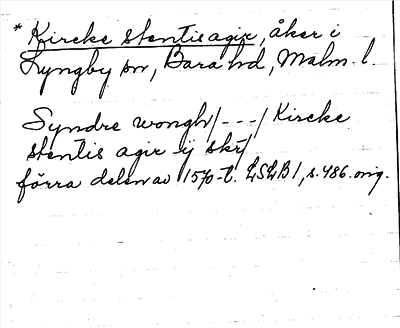 * Kircke stentis agir, åker i
Lyngby sn, Bara hd, Malm. l.
Syndre wongh/---/Kircke
stentis agir ij skr/
förra delen av 1570-t. LSLB 1, s. 486. orig.